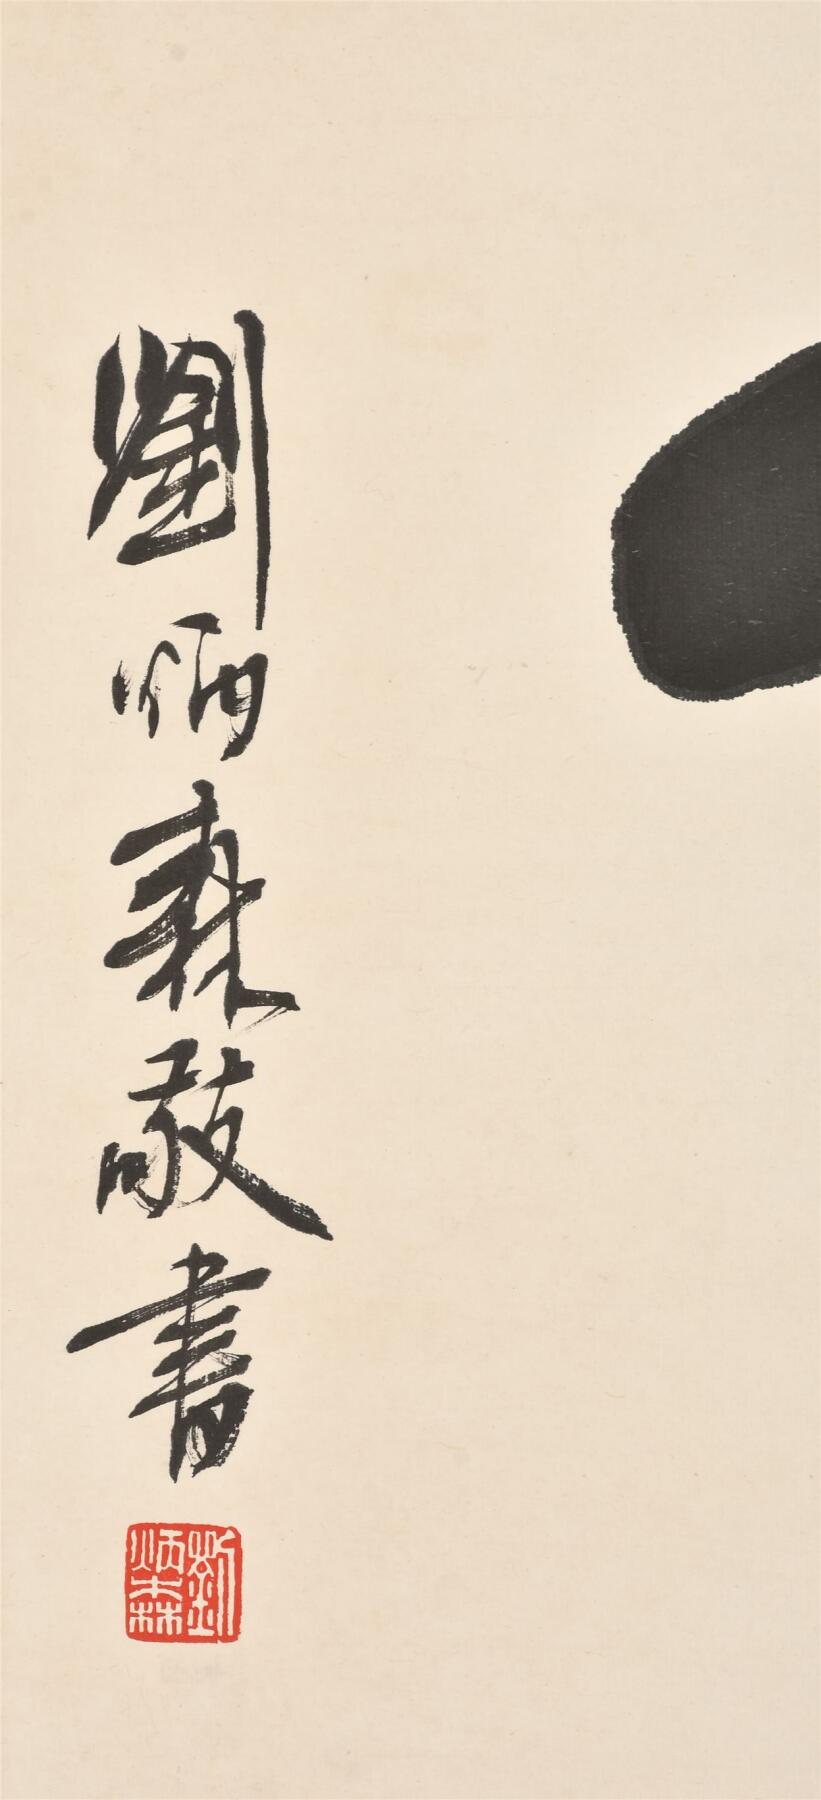 劉炳森敬書
劉炳森